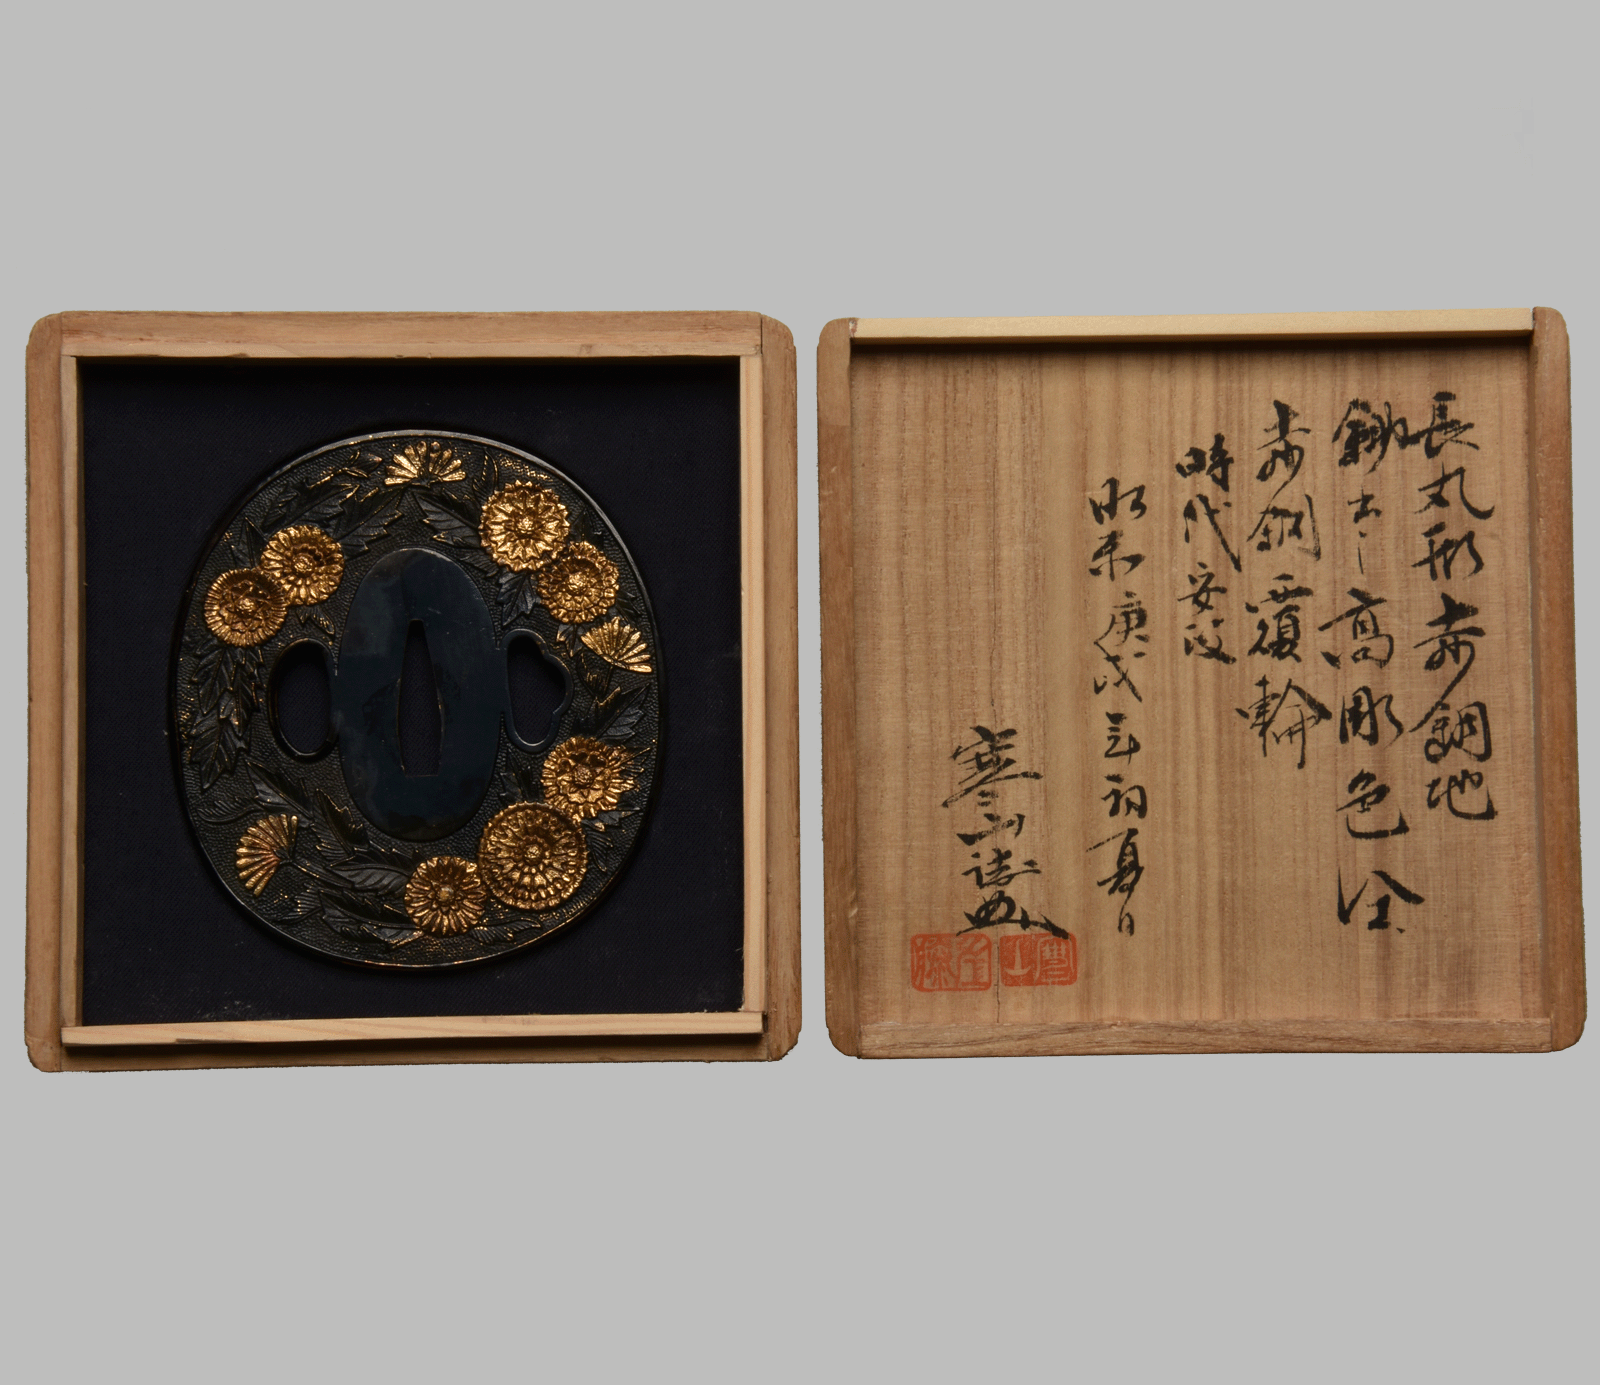 長丸形赤銅地
鋤出し高彫色絵
赤銅覆輪
時代安政
昭和庚戌年初夏日
寒山誌
寒山
佐藤